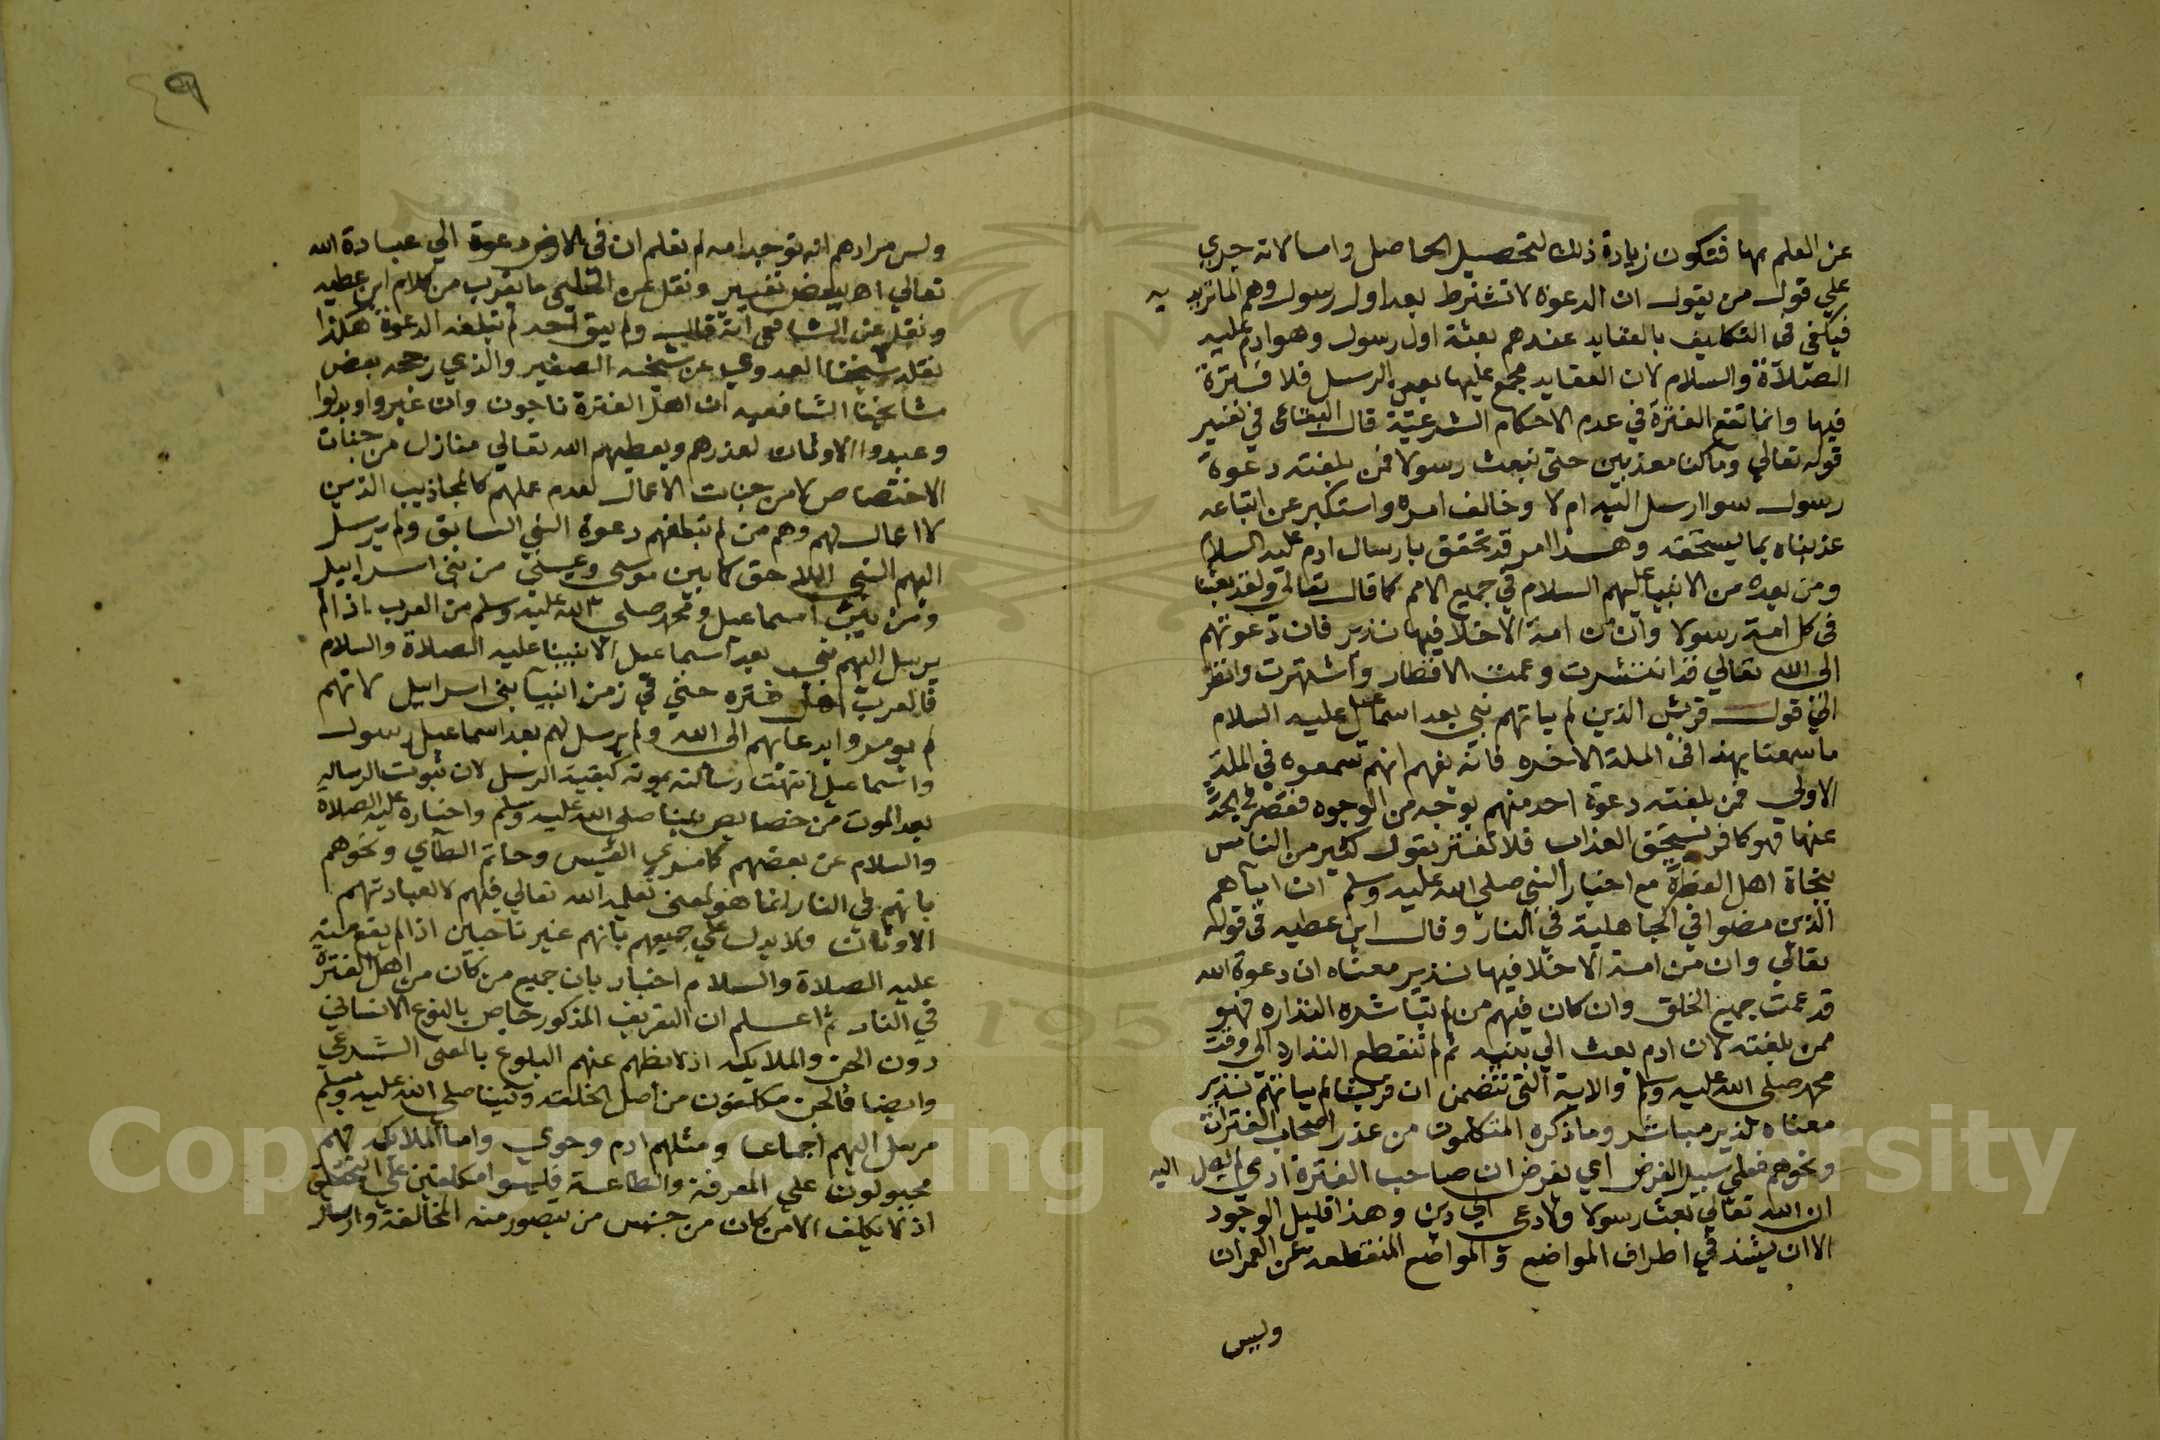 عن العلم بها فتكون زيادة ذلك لتحصيل الحاصل واما لانه جري
علي قول من يقول ان الدعوة لا تشترط بعد اول رسول وهم الماتريديه
فيكفي في التكليف بالعقايد عندهم بعثة اول رسول وهو ادم عليه
الصلاة والسلام لان العقايد مجمع عليها بعد الرسل فلا فترة
فيها وانما تقع الفترة في عدم الاحكام الشرعية قال البقاعي في تفسير
قوله تعالي وما كنا معذبين حتي نبعث رسولا فمن بلغته دعوة
رسول سوا ارسل اليه ام لا وخالف امره واستكبر عن اتباعه
عذبناه بما يستحقه وهذا امر قد تحقق بارسال ادم عليه السلام
ومن بعده من الانبياء عليهم السلام في جميع الامم كما قال تعالي ولقد بعثنا
في كل امة رسولا وان من امة الا خلا فيها نذير فان دعوتهم
الى الله تعالي قد انتشرت وعمت الاقطار واشتهرت وانظر
الي قول قريش الذين لم ياتهم نبي بعد اسماعيل عليه السلام
ما سمعنا بهذا في الملة الاخره فانه يفهم انهم سمعوه في الملة
الاولي فمن بلغته دعوة احد منهم بوجه من الوجوه فقصر في البحث
عنها فهو كافر يستحق العذاب فلا تغتر بقول كثير من الناس
بنجاة اهل الفترة مع اخبار النبي صلى الله عليه وسلم ان اباهم
الذين مضوا في الجاهلية في النار وقال ابن عطيه في قوله
تعالي وان من امة الا خلا فيها نذير معناه ان دعوة الله
قد عمت جميع الخلق وان كان فيهم من لم تباشره النذاره فهو
ممن بلغته لان ادم بعث الي بنيه ثم لم تنقطع النذاره الى وقت
محمد صلى الله عليه وسلم والاية التي تتضمن ان قريشا لم ياتهم نذير
معناه نذير مباشر وما ذكره المتكلمون من عذر اصحاب الفترات
ونحوهم فعلي سبيل الفرض اي لفرض ان صاحب الفترة ادمي لم يصل اليه
ان الله تعالي بعث رسولا ولا دعي الي دين وهذا قليل الوجود
الا ان يشذ في اطراف المواضع والمواضع المنقطعه عن العمران
وليس
٤٩
وليس مرادهم انه توجد امه لم تعلم ان في الارض دعوة الي عبادة الله
تعالي اه ببعض تغيير ونقل عن الحليمي ما يقرب من كلام ابن عطيه
ونقل عن الشافعي انه قال ولم يبق احد لم تبلغه الدعوة هكذا
نقله شيخنا العدوي عن شيخه الصغير والذي رجحه بعض
مشايخنا الشافعيه ان اهل الفترة ناجون وان غيروا وبدلوا
وعبدوا الاوثان لعذرهم ويعطيهم الله تعالي منازل من جنات
الاختصاص لا من جنات الاعمال لعدم عملهم كالمجاذيب الذين
لا اعمال لهم وهم من لم تبلغهم دعوة النبي السابق ولم يرسل
اليهم النبي اللاحق كما بين موسى وعيسى من بني اسراييل
ومن بين اسماعيل ومحمد صلى الله عليه وسلم من العرب اذ لم
يرسل اليهم نبي بعد اسماعيل الا نبينا عليه الصلاة والسلام
فالعرب اهل فتره حتي في زمن انبيا بني اسراييل لانهم
لم يومروا بدعايهم الى الله ولم يرسل لهم بعد اسماعيل رسول
واسماعيل انتهت رسالته بموته كبقية الرسل لان ثبوت الرساله
بعد الموت من خصايص نبينا صلى الله عليه وسلم واخباره عليه الصلاة
والسلام عن بعضهم كامرئ القيس وحاتم الطآي ونحوهم
بانهم في النار انما هو لمعنى يعلمه الله تعالي فيهم لا لعبادتهم
الاوثان ولا يدل علي جميعهم بانهم غير ناجين اذ لم يقع منه
عليه الصلاة والسلام اخبار بان جميع من كان من اهل الفترة
في النار ثم اعلم ان التعريف المذكور خاص بالنوع الانساني
دون الجن والملايكه اذ لا يظهر عنهم البلوغ بالمعنى الشرعي
وايضا فالجن مكلفون من اصل الخلقه ونبينا صلى الله عليه وسلم
مرسل اليهم اجماعا ومثلهم ادم وحوي واما الملايكه فهم
مجبولون علي المعرفة والطاعة فليسوا مكلفين علي التحقيق
اذ لا يكلف الا من كان من جنس من يتصور منه المخالفة وارسال
Copyright © King Saud University
1957